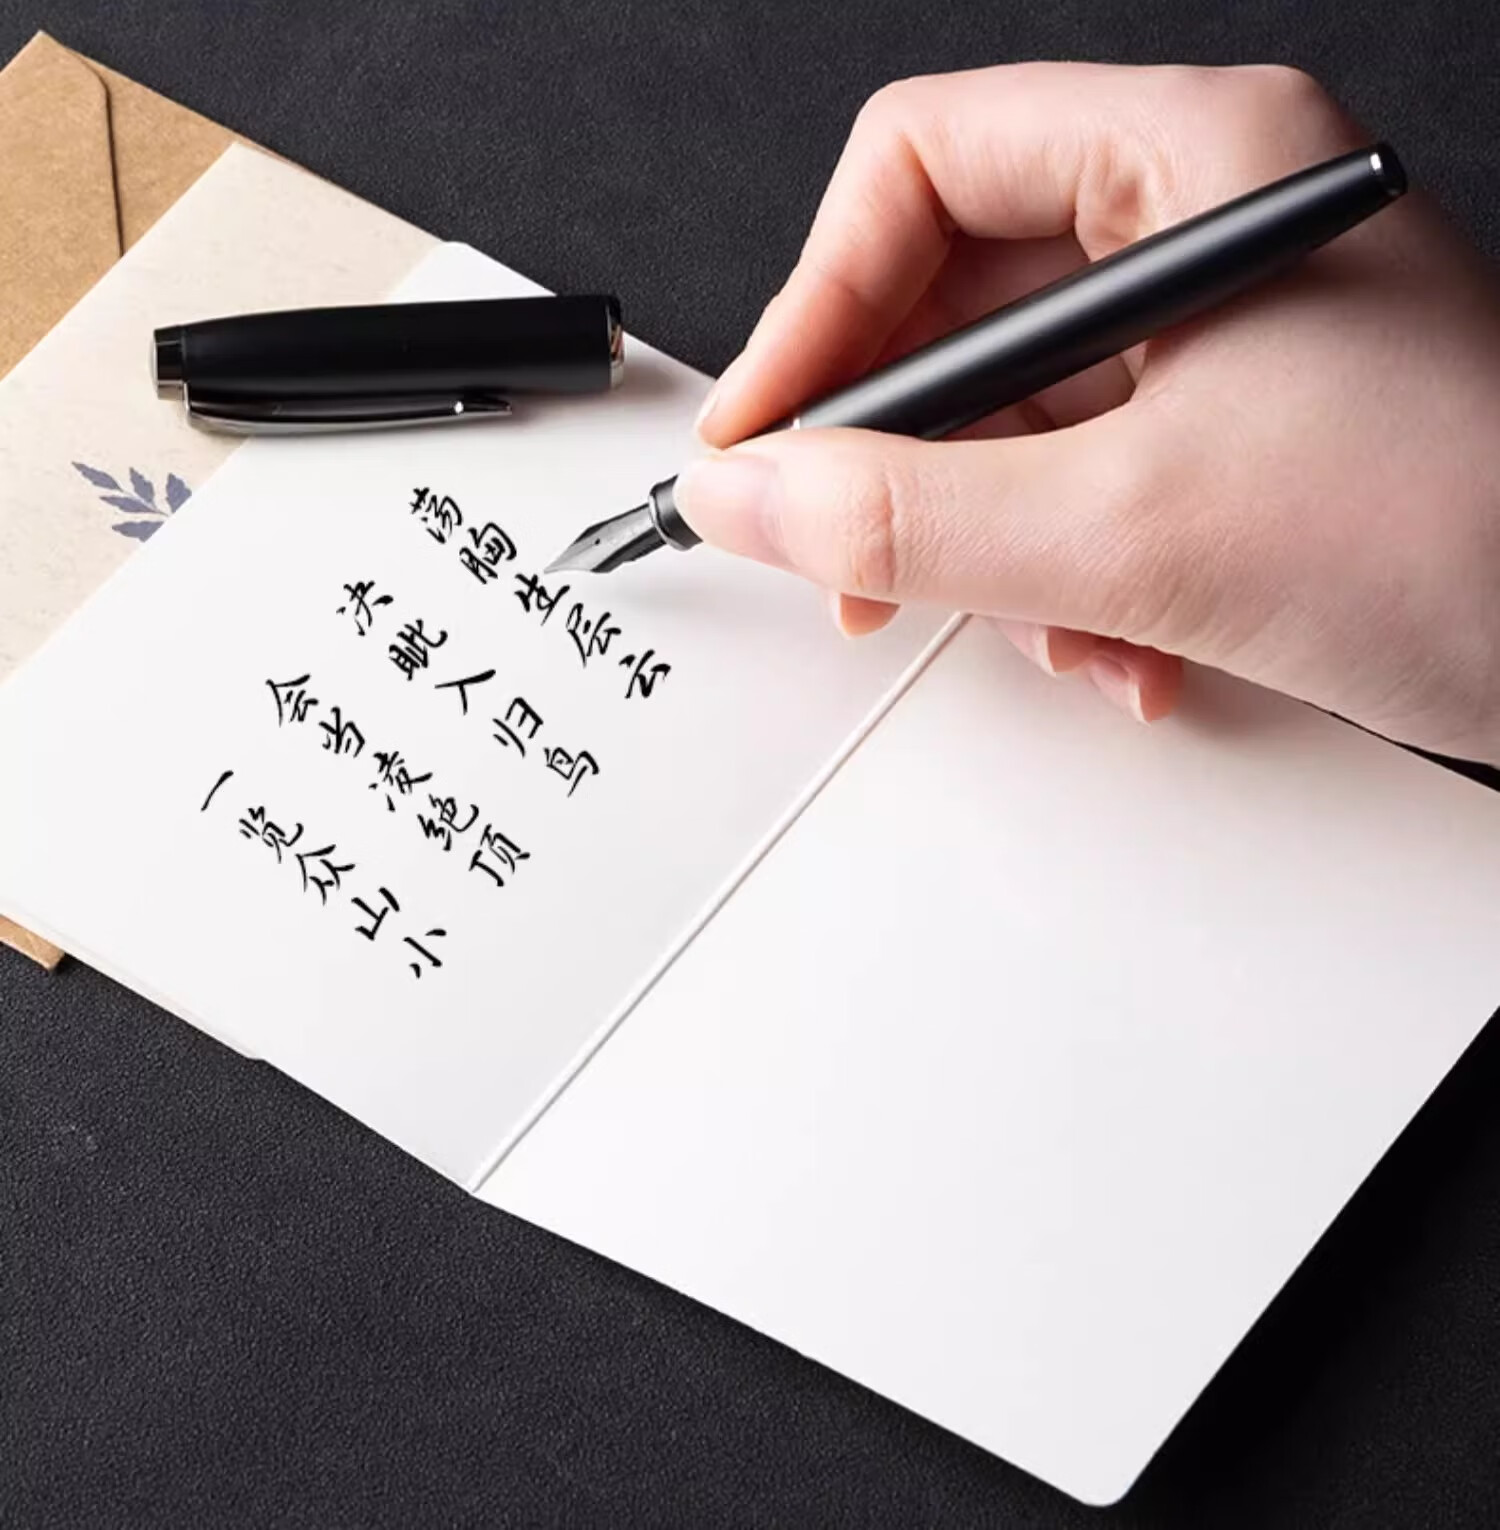 荡胸生层云
决眦人归鸟
会当凌绝顶
一览众山小